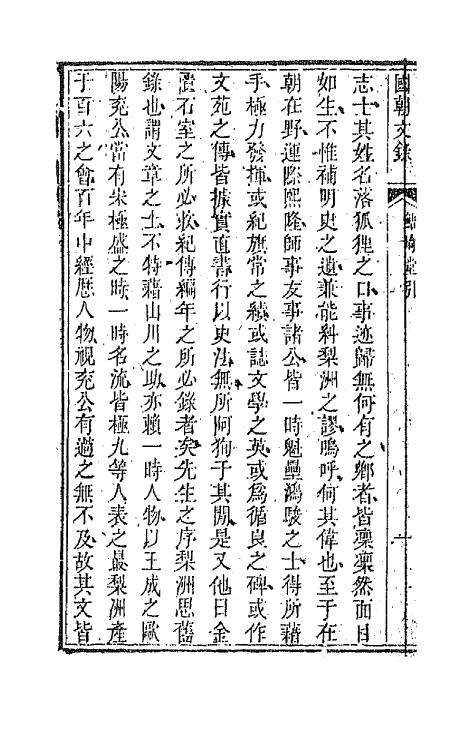 國朝文錄
鮚埼堂引
志士其姓名落狐狸之口事迹歸無何有之鄉者皆凜凜然面目
如生不惟補明史之遺兼能糾梨洲之謬嗚呼何其偉也至于在
朝在野運際熙隆師事友事諸公皆一時魁壘鴻駿之士得所藉
手極力發揮或紀旗常之績或誌文學之英或爲循良之碑或作
文苑之傳皆據實直書行以史法無所阿狥于其閒是又他日金
匱石室之所必收紀傳編年之所必錄者矣先生之序梨洲思舊
錄也謂文章之士不特藉山川之助亦賴一時人物以玉成之歐
陽兗公當有宋極盛之時一時名流皆極九等人表之最梨洲產
于百六之會百年中經歷人物視兗公有過之無不及故其文皆